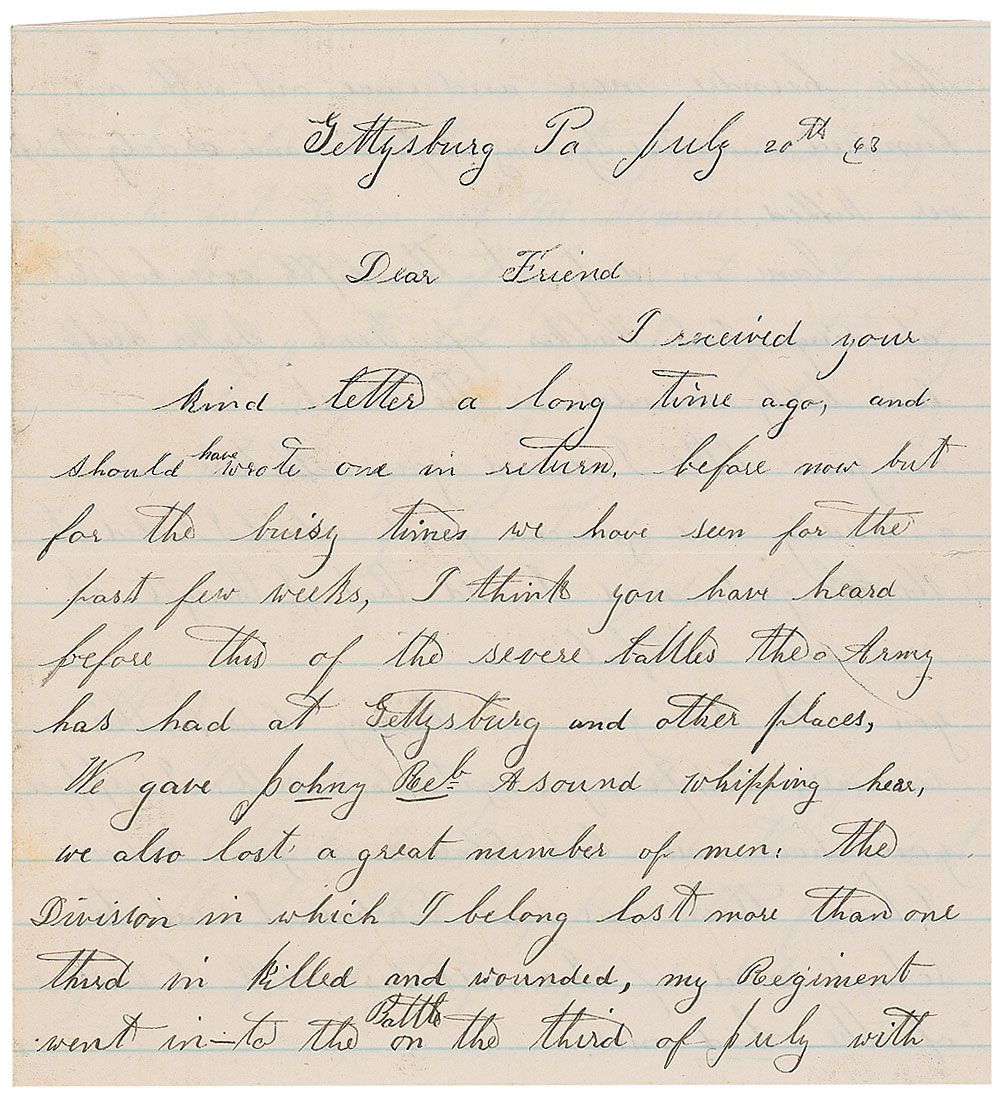 Gettysburg Pa July 20th 63
Dear Friend
I received your
kind letter a long time ago, and
should have wrote one in return, before now but
for the buisy times we have seen for the
past few weeks, I think you have heard
before this of the severe battles the Army
has had at Gettysburg and other places,
We gave Johny Reb A sound whipping hear,
we also lost a great number of men: the
Division in which I belong lost more than one
third in killed and wounded, my Regiment
went in-to the Battle on the third of July with